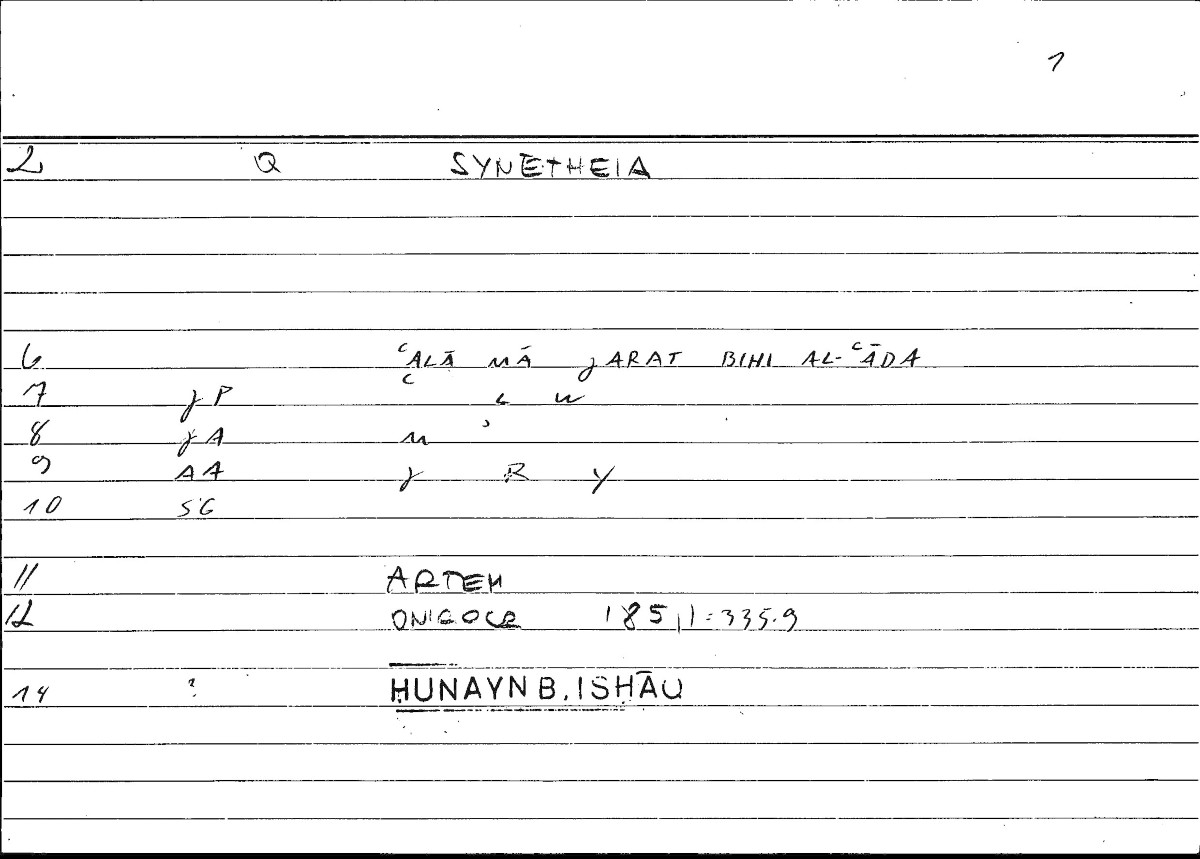 1
2 Q SYNĒTHEIA
6 ʿALĀ MĀ JARAT BIHI AL-ʿĀDA
7 JP ʿ L W
8 JA M ʾ
9 AA J R Y
10 SG
11 ARTEM
12 ONIROCR 185,1=335.9
14 ? ḤUNAYN B. ISḤĀQ